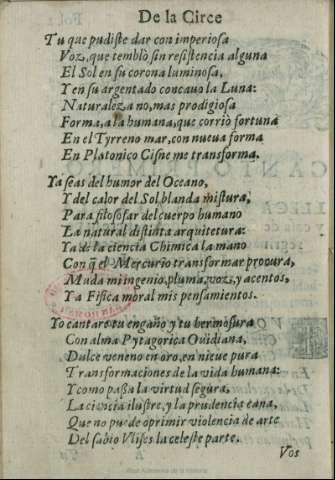 De la Circe
Tu que pudiste dar con imperiosa
Voz, que temblò sin resistencia alguna
El Sol en su corona luminosa,
Y en su argentado concauo la Luna:
Naturaleza no, mas prodigiosa
Forma, a la humana, que corriò fortuna
En el Tyrreno mar, con nueua forma
En Platonico Cisne me transforma.
Ya seas del humor del Oceano,
Y del calor del Sol blanda mistura,
Para filosofar del cuerpo humano
La natural distinta arquitetura:
Ya de la ciencia Chimica la mano
Con q̃ el Mercurio transformar procura,
Muda mi ingenio, pluma, voz, y acentos,
Ya Fisica moral mis pensamientos.
Yo cantarè tu engaño y tu hermosura
Con alma Pytagorica Ouidiana,
Dulce veneno en oro, en nieue pura
Transformaciones de la vida humana:
Y como passa la virtud segura,
La ciencia ilustre, y la prudencia cana,
Que no puede oprimir violencia de arte
Del sabio Vlises la celeste parte.
Vos
Real Academia de la Historia